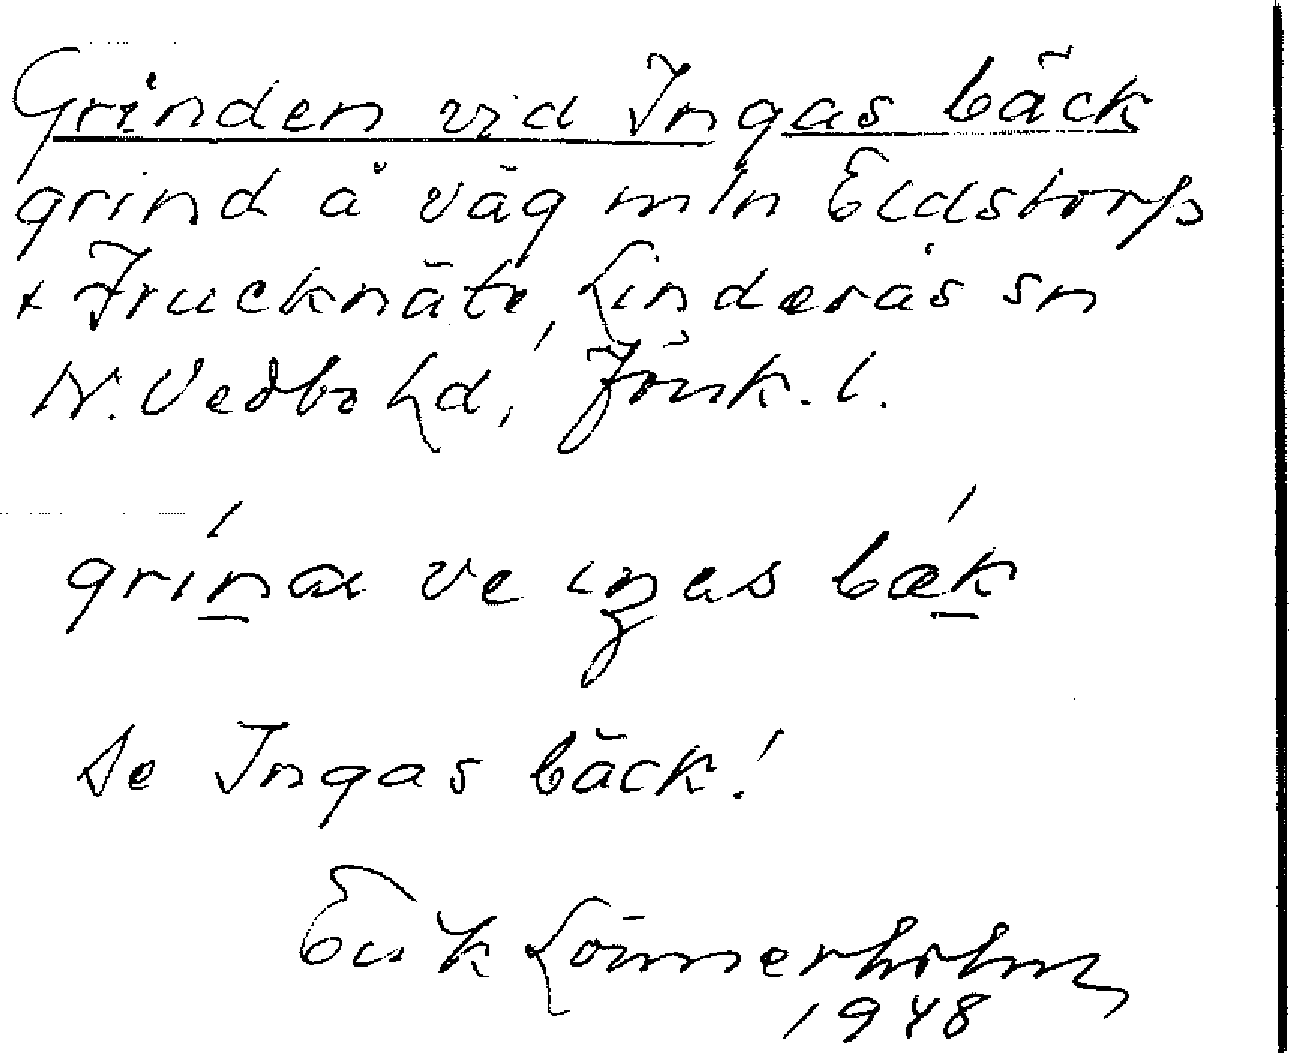 Grinden vid Ingas bäck
grind å väg mln Eldstorp
+ Trucknäte, Linderås sn
N. Vedbo hd, Jönk. l.
grína ve ıŋas bæḱ
Se Ingas bäck!
Erik Lönnerholm
1948